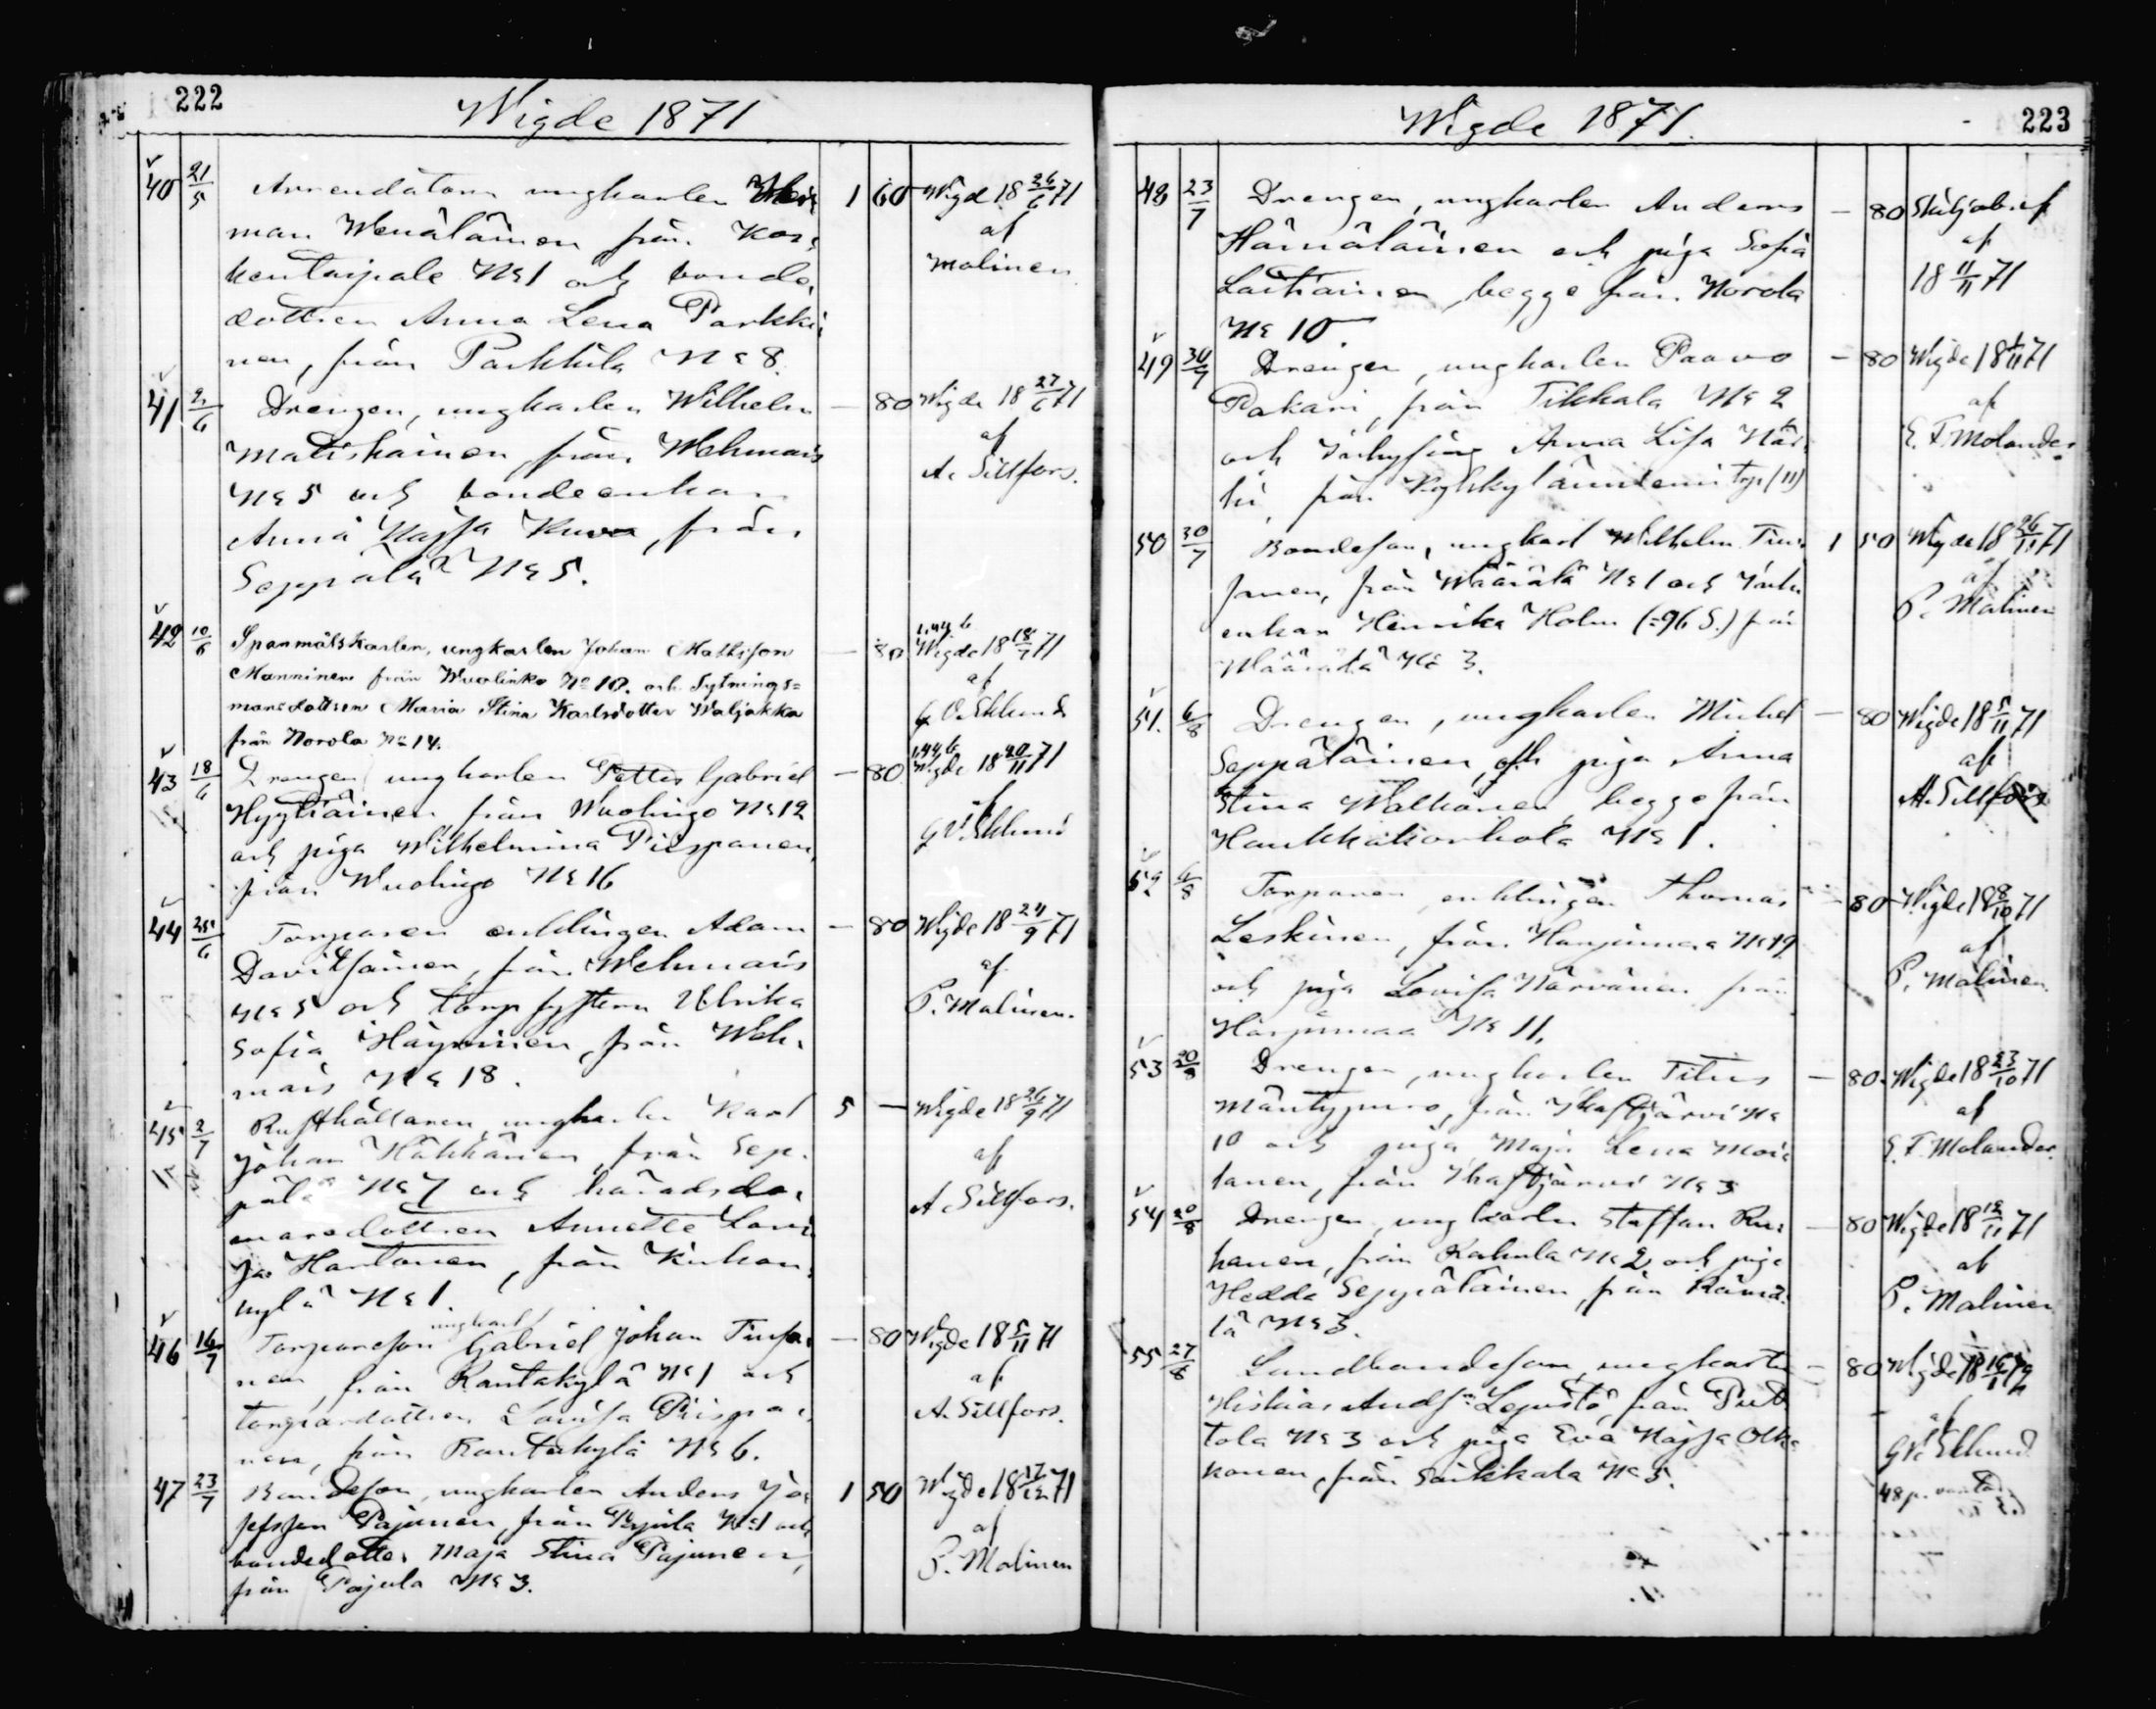 222
Wigde 1871
40 21/5 Arrendatorn ungkarlen Her=
man Wenäläinen från Kos=
kentaipale N:o 1 och bonde=
dottren Anna Lena Parkki=
nen, från Parkkila N:o 8.
1 60 Wigd 18 26/6 71
af
Malinen
41 2/6 Drengen, ungkarlen Wilhelm
Matiskainen, från Wehmais
N:o 5 och bondeenkan
Anna Kajsa Kuva, från
Seppälä N:o 5.
— 80 Wigde 18 27/6 71
af
A. Sillfors.
42 10/6 Spanmålskarlen, ungkarlen Johan Mathsson
Manninen från Wuolinko N:o 10. och Sytnings=
mansdottren Maria Stina Karlsdotter Waljakka
från Norola N:o 14.
— 80 1,44 b
Wigde 18 18/7 71
af
G V. Eklund
43 18/6 Drengen ungkarlen Petter Gabriel
Hyytiäinen, från Wuolingo N:o 12
och piga Wilhelmina Piispanen,
från Wuolingo N:o 16
— 80 1,44 b
Wigde 18 20/11 71
af
G V. Eklund
44 25/6 Torparen enklingen Adam
Davitsainen, från Wehmais
N:o 5 och torpsystern Ulrika
Sofia Häyrinen, från Weh=
mais N:o 18.
— 80 Wigde 18 24/9 71
af
P. Malinen.
45 2/7 Rusthållaren ungkarlen Karl
Johan Häkkänen, från Sep=
pälä N:o 7 och häradsdo=
maredottren Annette Lovi
sa Hartonen, från Kirkon=
kylä N:o 1.
5 — Wigde 18 26/9 71
af
A. Sillfors.
46 16/7 Torparesson ungkarl Gabriel Johan Tiusa=
nen, från Rantakylä N:o 1 och
torparedottren Lovisa Piispa=
nen, från Rantakylä N:o 6.
— 80 Wigde 18 5/11 71
af
A. Sillfors.
47 23/7 Bondeson, ungkarlen Anders Jo=
sefsson Pajunen, från Pajula N:o 1 och
bondedotter Maja Stina Pajunen,
från Pajula N:o 3.
1 50 Wigde 18 17/12 71
af
P. Malinen
Wigde 1871.
223
48 23/7 Drengen, ungkarlen Anders
Hämäläinen och piga Sofia
Laitiainen, begge från Norola
N:o 10.
— 80
af
18 11/11 71
49 30/7 Drengen, ungkarlen Paavo
Pakari, från Tikkala N:o 2
och Anna Lisa När=
hi, från
— 80 Wigde 18 1/11 71
af
E. F. Molander
50 30/7 Bondeson, ungkarl Wilhelm Tiu=
sanen, från Wäärälä N:o 1 och
enkan Henrika Holm (=96 S.) från
Wäärälä N:o 3.
1 50 Wigde 18 26/11 71
af
P. Malinen
51. 6/8 Drengen, ungkarlen Michel
Seppäläinen, och piga Anna
Stina Walkonen, begge från
Haukkakorhola N:o 1.
— 80 Wigde 18 5/11 71
af
A. Sillfors
52 6/8 Torparen, enklingen Thomas
Leskinen, från Harjumaa N:o 19
och piga Lovisa Närvänen från
Harjumaa N:o 11.
— 80 Wigde 18 8/10 71
af
P. Malinen.
53 20/8 Drengen, ungkarlen Titus
Mäntypuro, från N:o
10 och piga, Maja Lena Moi=
lanen, från N:o 3
— 80. Wigde 18 23/10 71
af
E. F. Molander.
54 20/8 Drengen, ungkarlen Staffan Ru=
hanen, från Kahula N:o 2 och piga
Hedda Seppäläinen, från Rämä=
lä N:o 3.
— 80 Wigde 18 12/11 71
af
P. Malinen
55 27/8 Landbondeson, ungkarlen
Hiskias Andsn. Lepistö, från Put
tola N:o 3 och piga Eva Kajsa Olk=
konen, från Särkkala N:o 5.
— 80 Wigde 18 16/1 72
af
G V. Eklund
48 p.